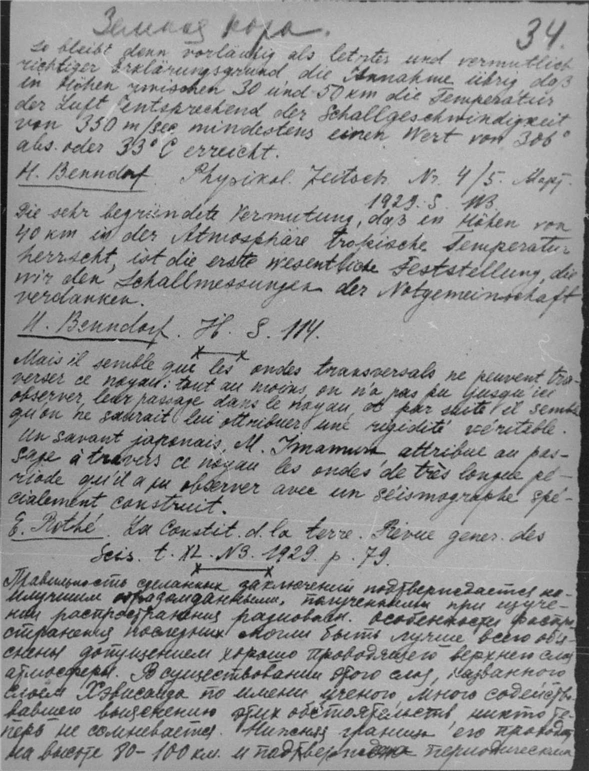 Земная кора. 34.
So bleibt denn vorläufig als letzter und vermutlich
richtiger Erklärungsgrund die Annahme übrig daß
in Höhen zwischen 30 und 50 km die Temperatur
der Luft entsprechend der Schallgeschwindigkeit
von 350 m/sec mindestens einen Wert von 306°
abs. oder 33°C erreicht.
H. Benndorf. Physikal. Zeitsch. Nr. 4/5. März.
1929. S. 113
Die sehr begründete Vermutung, daß in Höhen von
40 km in der Atmosphäre tropische Temperatur
herrscht, ist die erste wesentliche Feststellung, die
wir den Schallmessungen der Notgemeinschaft
verdanken.
H. Benndorf. H. S. 114.
Mais il semble que les ondes transversals ne peuvent tra-
verser ce noyau; tout au moins, on n'a pas pu jusqu'ici
observer leur passage dans le noyau, et par suite il semble
qu'on ne saurait lui attribuer une rigidité véritable.
Un savant japonais, M. Imamura attribue au pas-
sage à travers ce noyau les ondes de très longue pé-
riode qu'il a pu observer avec un séismographe spé-
cialement construit.
E. Rothé. La Constit. d. la terre. Revue gener. des
Scis. t. XL. N3. 1929 p. 79.
Правильность сделанных заключений подтверждается на-
илучшим образом данными, полученными при изуче-
нии распространения радиоволн. Особенности распро-
странения последних могли быть лучше всего объя-
снены допущением хорошо проводящего верхнего слоя
атмосферы. В существовании этого слоя, названного
слоем Хэвисайда по имени ученого, много содейство-
вавшего выяснению этих обстоятельств, никто те-
перь не сомневается. Нижняя граница его проходит
на высоте 80-100 км. и подтверждена периодическим